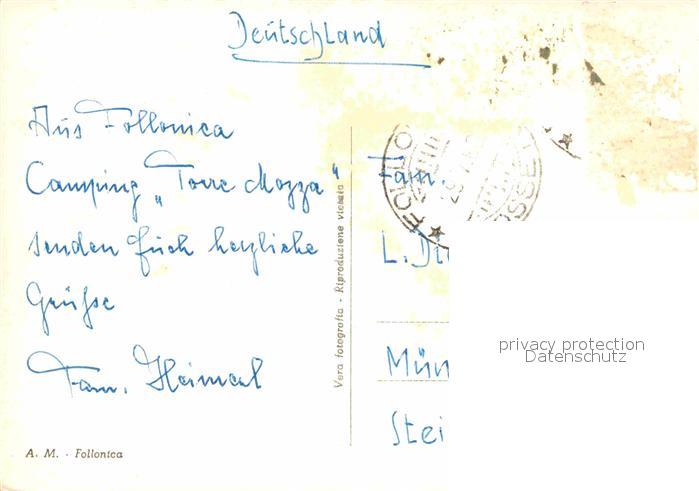 Deutschland
Aus Follonica
Camping „Torre Mozza"
senden Euch herzliche
Grüße
Fam.
A. M. - Follonica
Vera fotografia - Riproduzione vietata
Fam.
L. Di
Mün
Stei
privacy protection
Datenschutz